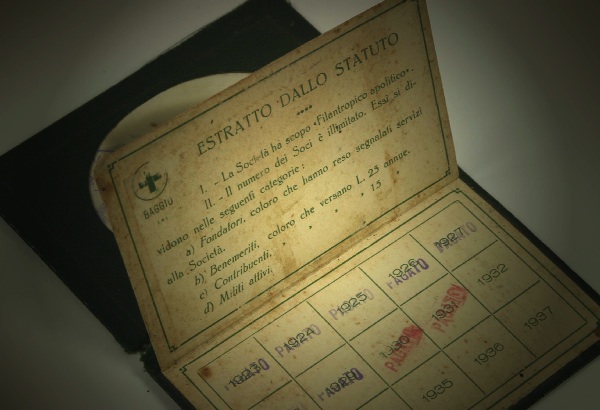 ESTRATTO DALLO STATUTO
BAGGIU
I. - La Società ha scopo "Filantropico apolitico".
II. - Il numero dei Soci è illimitato. Essi si di-
vidono nelle seguenti categorie:
a) Fondatori, coloro che hanno reso segnalati servizi
alla Società.
b) Benemeriti, coloro che versano L. 25 annue.
c) Contribuenti, " " " 15 "
d) Militi attivi.
1923 1924 1925 1926 1927
PAGATO PAGATO PAGATO PAGATO
1931 1932
PAGATO
1935 1936 1937